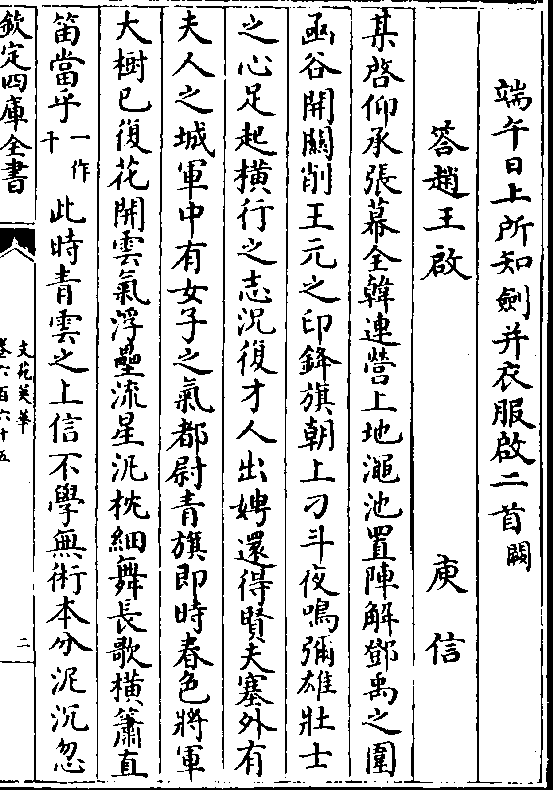 端午日上所知劍并衣服啟二首闕
答趙王啟　庾信
某啓仰承張幕全韓連營上地澠池置陣解鄧禹之圍
函谷開關削王元之印鋒旗朝上刁斗夜鳴彌雄壯士
之心足起橫行之志況復才人出娉還得賢夫塞外有
夫人之城軍中有女子之氣都尉青旗即時春色將軍
大樹已復花開雲氣浮壘流星汎枕細舞長歌橫簫直
笛當乎一作千此時青雲之上信不學無術本分泥沉忽
欽定四庫全書
文苑英華
卷六百六十五
二